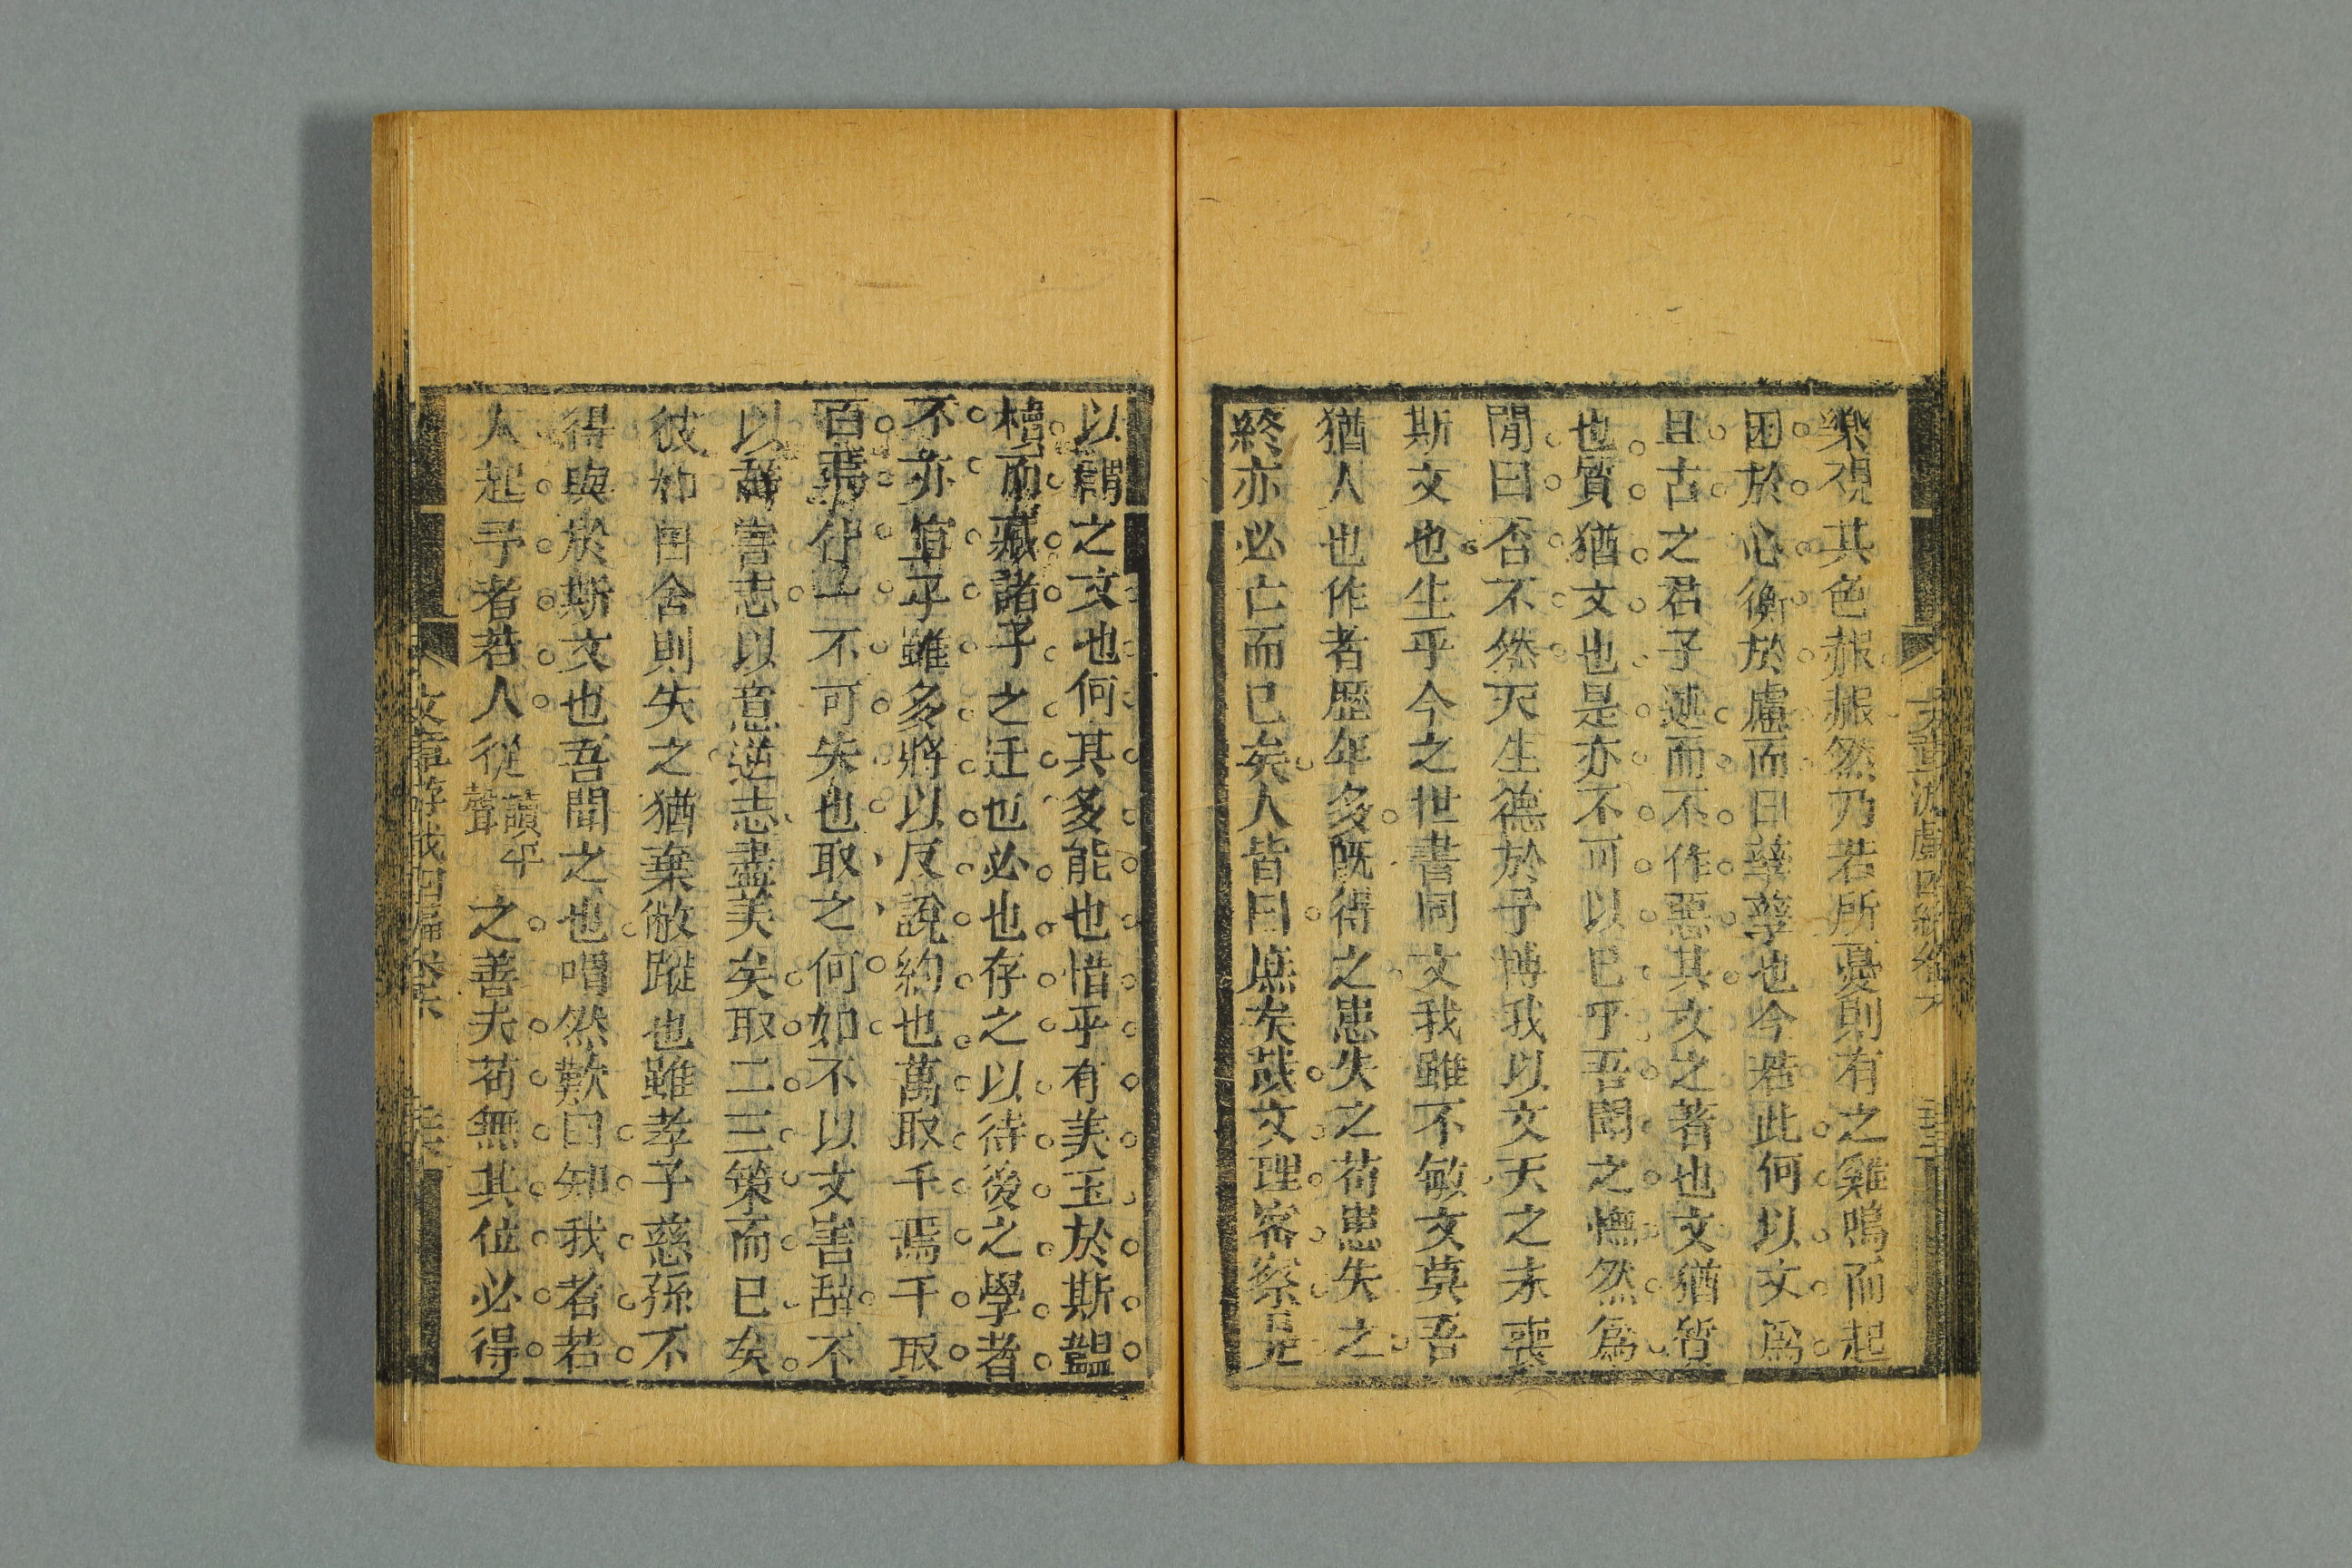 樂視其色赧赧然乃若所憂則有之雞鳴而起
困於心衡於慮而曰孳孳也今若此何以文爲
且古之君子述而不作惡其文之著也文猶質
也質猶文也是亦不可以已乎吾聞之憮然爲
閒曰否不然天生德於予博我以文天之未喪
斯文也生乎今之世書同文我雖不敏文莫吾
猶人也作者歷年多既得之患失之苟患失之
終亦必亡而已矣人皆曰庶矣哉文理密察足
以謂之文也何其多能也惜乎有美玉於斯韞
櫝而藏諸子之迂也必也存之以待後之學者
不亦宜乎雖多將以反說約也萬取千焉千取
百焉什一不可失也取之何如不以文害辭不
以辭害志以意逆志盡美矣取二三策而已矣
彼如曰舍則失之猶棄敝蹝也雖孝子慈孫不
得與於斯文也吾聞之也喟然歎曰知我者若
人起予者若人從讀平聲之善夫苟無其位必得
文章游戲四編卷六